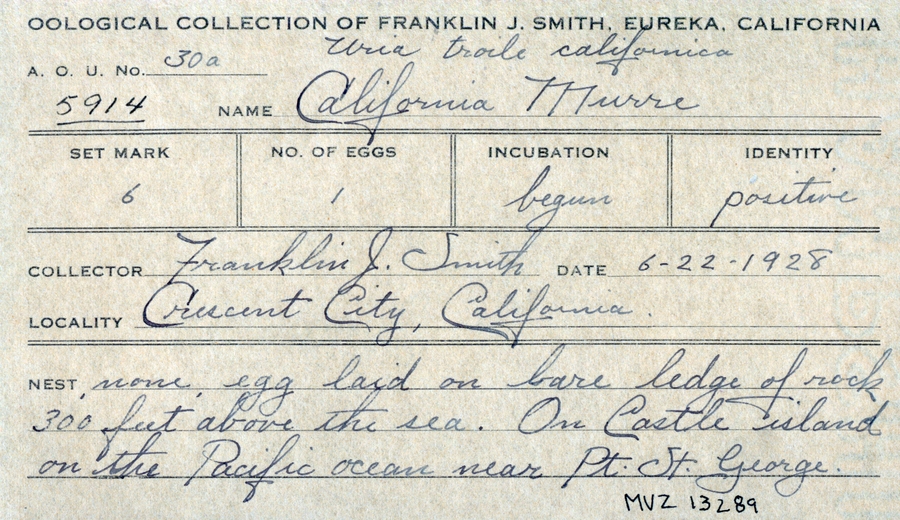 OOLOGICAL COLLECTION OF FRANKLIN J. SMITH, EUREKA, CALIFORNIA
Uria troile californica
A. O. U. No. 30a
5914 NAME California Murre
SET MARK NO. OF EGGS INCUBATION IDENTITY
6 1 begun positive
COLLECTOR Franklin J. Smith DATE 6-22-1928
LOCALITY Crescent City, California.
NEST, none, egg laid on bare ledge of rock
300 feet above the sea. On Castle island
on the Pacific ocean near Pt. St. George.
MVZ 13289